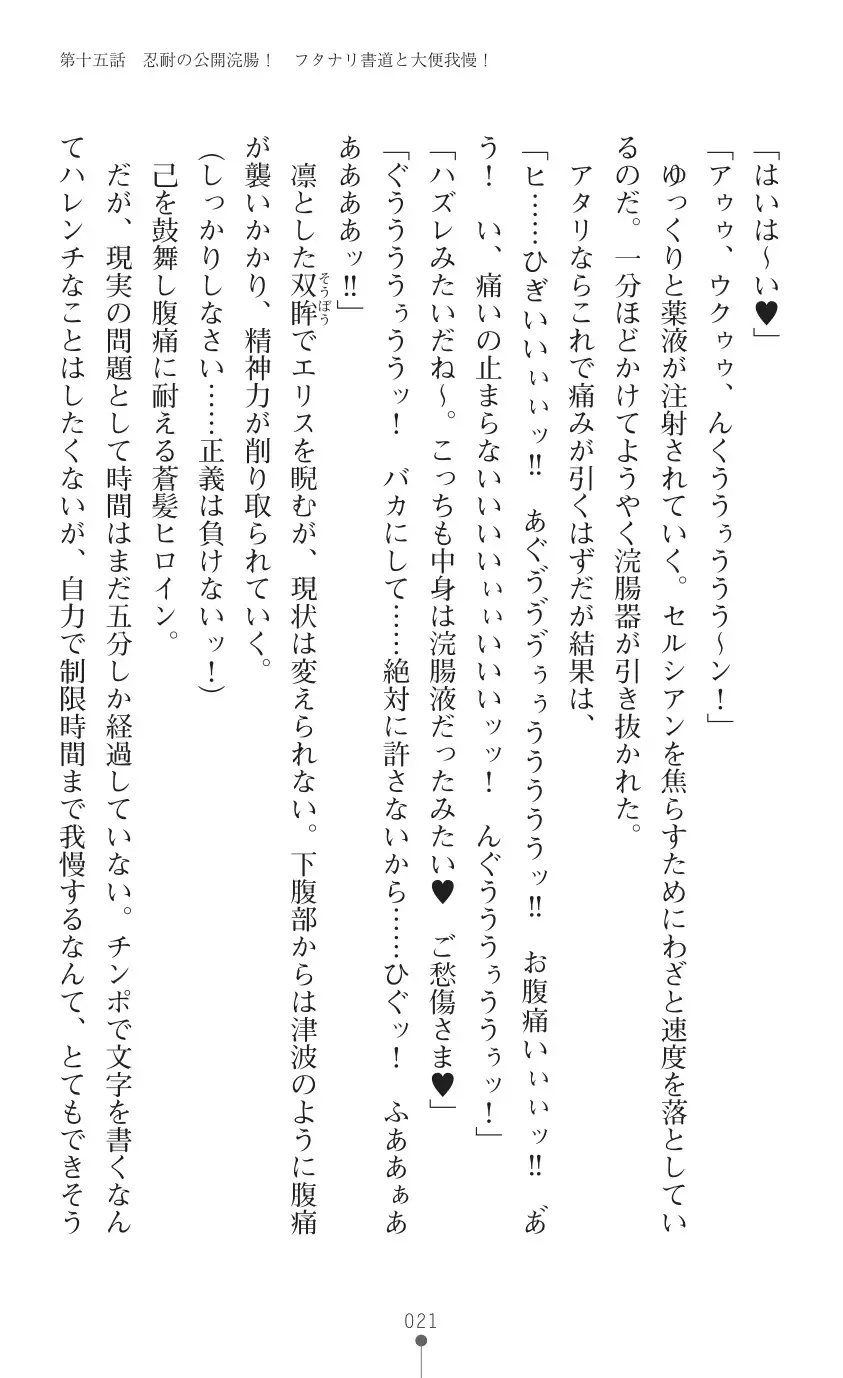 第十五話　忍耐の公開浣腸！　フタナリ書道と大便我慢！
「はいは～い♥」
「アゥゥ、ウクゥゥ、んくううぅううう～ン！」
　ゆっくりと薬液が注射されていく。セルシアンを焦らすためにわざと速度を落としてい
るのだ。一分ほどかけてようやく浣腸器が引き抜かれた。
　アタリならこれで痛みが引くはずだが結果は、
「ヒ……ひぎいいいぃッ‼　あぐゔゔゔぅぅうううううッ‼　お腹痛いぃぃッ‼　あ゙
う！　い、痛いの止まらないいいいいぃぃいいいいッッ！　んぐうううぅううぅッ！」
「ハズレみたいだね～。こっちも中身は浣腸液だったみたい♥　ご愁傷さま♥」
「ぐううううぅううッ！　バカにして……絶対に許さないから……ひぐッ！　ふああぁあ
ああああッ‼」
　凛とした双眸でエリスを睨むが、現状は変えられない。下腹部からは津波のように腹痛
そうぼう
が襲いかかり、精神力が削り取られていく。
（しっかりしなさい……正義は負けないッ！）
　己を鼓舞し腹痛に耐える蒼髪ヒロイン。
　だが、現実の問題として時間はまだ五分しか経過していない。チンポで文字を書くなん
てハレンチなことはしたくないが、自力で制限時間まで我慢するなんて、とてもできそう
021